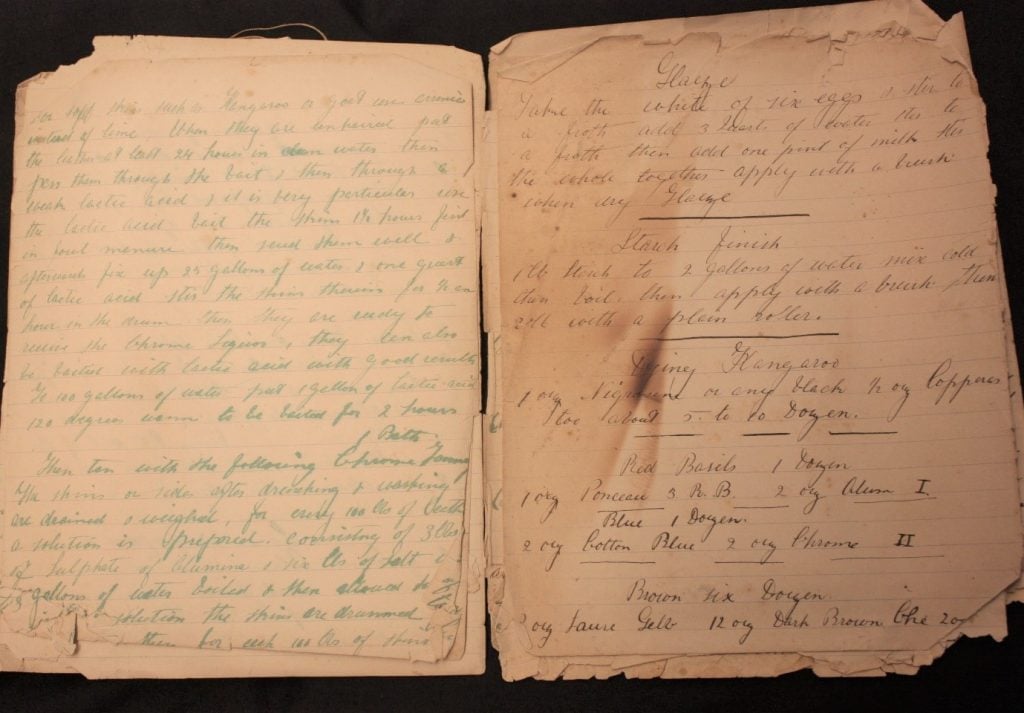 For soft skins such as Kangaroo or goat use arsenic
instead of lime. When they are unhaired put
the lashes at least 24 hours in clean water then
pass them through the bait & then through a
weak lactic acid, & it is very particular use
the lactic acid bait the skins 1½ hours first
in fowl manure then scud them well &
afterwards fix up 25 gallons of water & one quart
of lactic acid stir the skins therein for ½ an
hour in the drum. Then they are ready to
receive the Chrome liquor, they can also
be baited with lactic acid with good results
To 100 gallons of water put 1 gallon of lactic acid
120 degrees warm to be baited for 2 hours
1 Bath
Then tan with the following Chrome
The skins or sides after drenching & washing
are drained & weighed, for every 100 lbs of
a solution is prepared. consisting of 3 lbs
of Sulphate of Alumina & six lbs of salt &
gallons of water boiled & then allowed to
solution the skins are drummed
then for each 100 lbs of skins
Glaze
Take the white of six eggs & stir to
a froth add 3 quarts of water stir to
a froth then add one pint of milk stir
the whole together apply with a brush
when dry Glaze
Starch finish
1 lb Starch to 2 gallons of water mix cold
then boil. then apply with a brush then
roll with a plain roller.
Dying Kangaroo
1 ozg Nigrosine or any black ½ ozg Copperas
about 5 to 10 Dozen.
Red Basils 1 Dozen
1 ozg Ponceau 3 R.B. 2 ozg Alum I
Blue 1 Dozen.
2 ozg Cotton Blue 2 ozg Chrome II
Brown six Dozen
ozg Saure Gelb 12 ozg Dark Brown